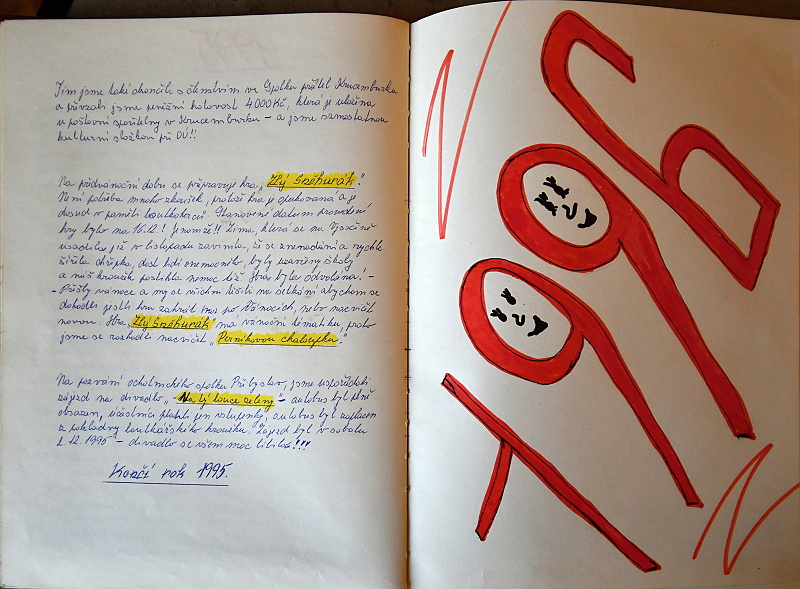 Tím jsme také skončili s členstvím ve Spolku přátel Krucemburska
a převzali jsme peněžní hotovost 4000 Kč, která je uložena
u poštovní spořitelny v Krucemburku - a jsme samostatnou
kulturní složkou při OÚ!!
Na předvánoční dobu se připravuje hra „Zlý Sněhurák".
Není potřeba mnoho zkoušek, protože hra je opakovaná a je
dosud v paměti loutkoherců. Stanovené datum provedení
hry bylo na 16.12.! Jenomže!! Zima, která se na Vysočině
usadila již v listopadu zavinila, že se znenadání a rychle
šířila chřipka, dost lidí onemocnělo, byly uzavřeny školy
a náš kroužek postihla nemoc též. Hra byla odvolána! -
- Přišly vánoce a my se všichni těšili na setkání abychom se
dohodli jestli hru zahrát po Vánocích, nebo nacvičit
novou. Hra „Zlý Sněhurák" má vánoční tématiku, proto
jsme se rozhodli nacvičit „Perníkovou chaloupku."
Na pozvání ochotnického spolku Přibyslav, jsme uspořádali
zájezd na divadlo „Na tý louce zelený" - autobus byl plně
obsazen, účastníci platili jen vstupenky, autobus byl zaplacen
z pokladny loutkářského kroužku. Zájezd byl v sobotu
2.12.1995 - divadlo se všem moc líbilo!!!
Končí rok 1995.
1996